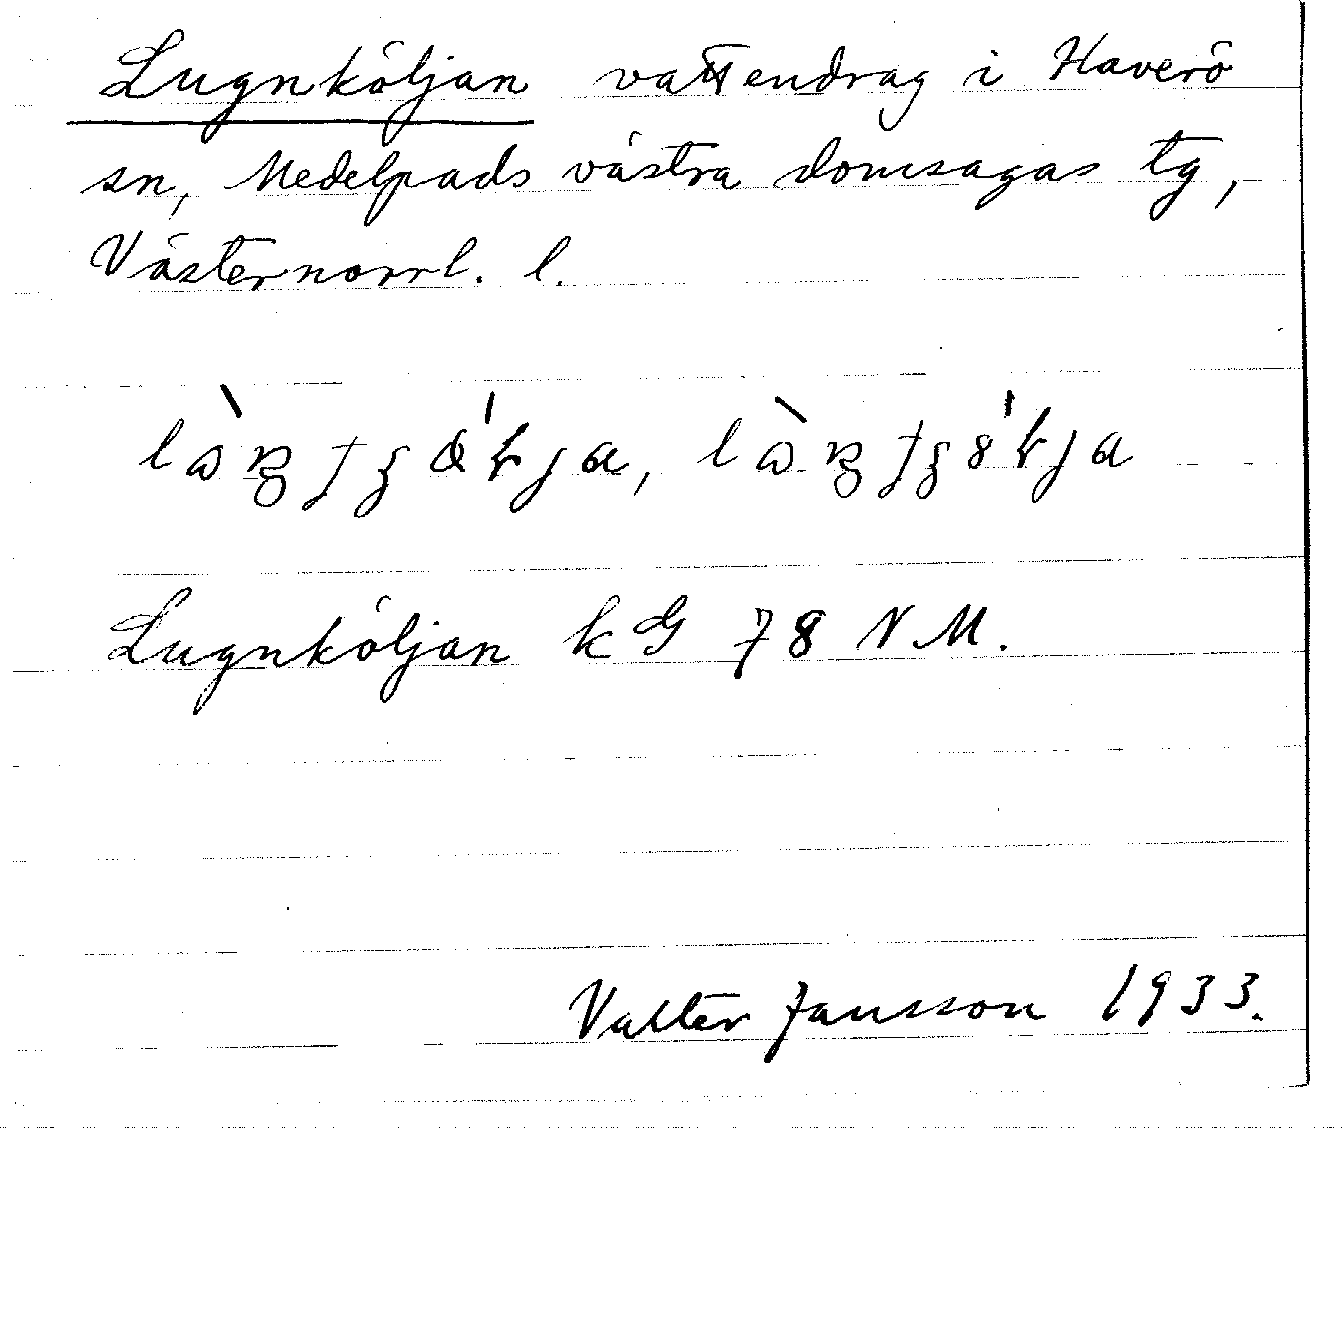 Lugnköljan vattendrag i Haverö
sn, Medelpads västra domsagas tg,
Västernorrl. l.
Lugnköljan kG 78 NM.
Valter Jansson 1933.